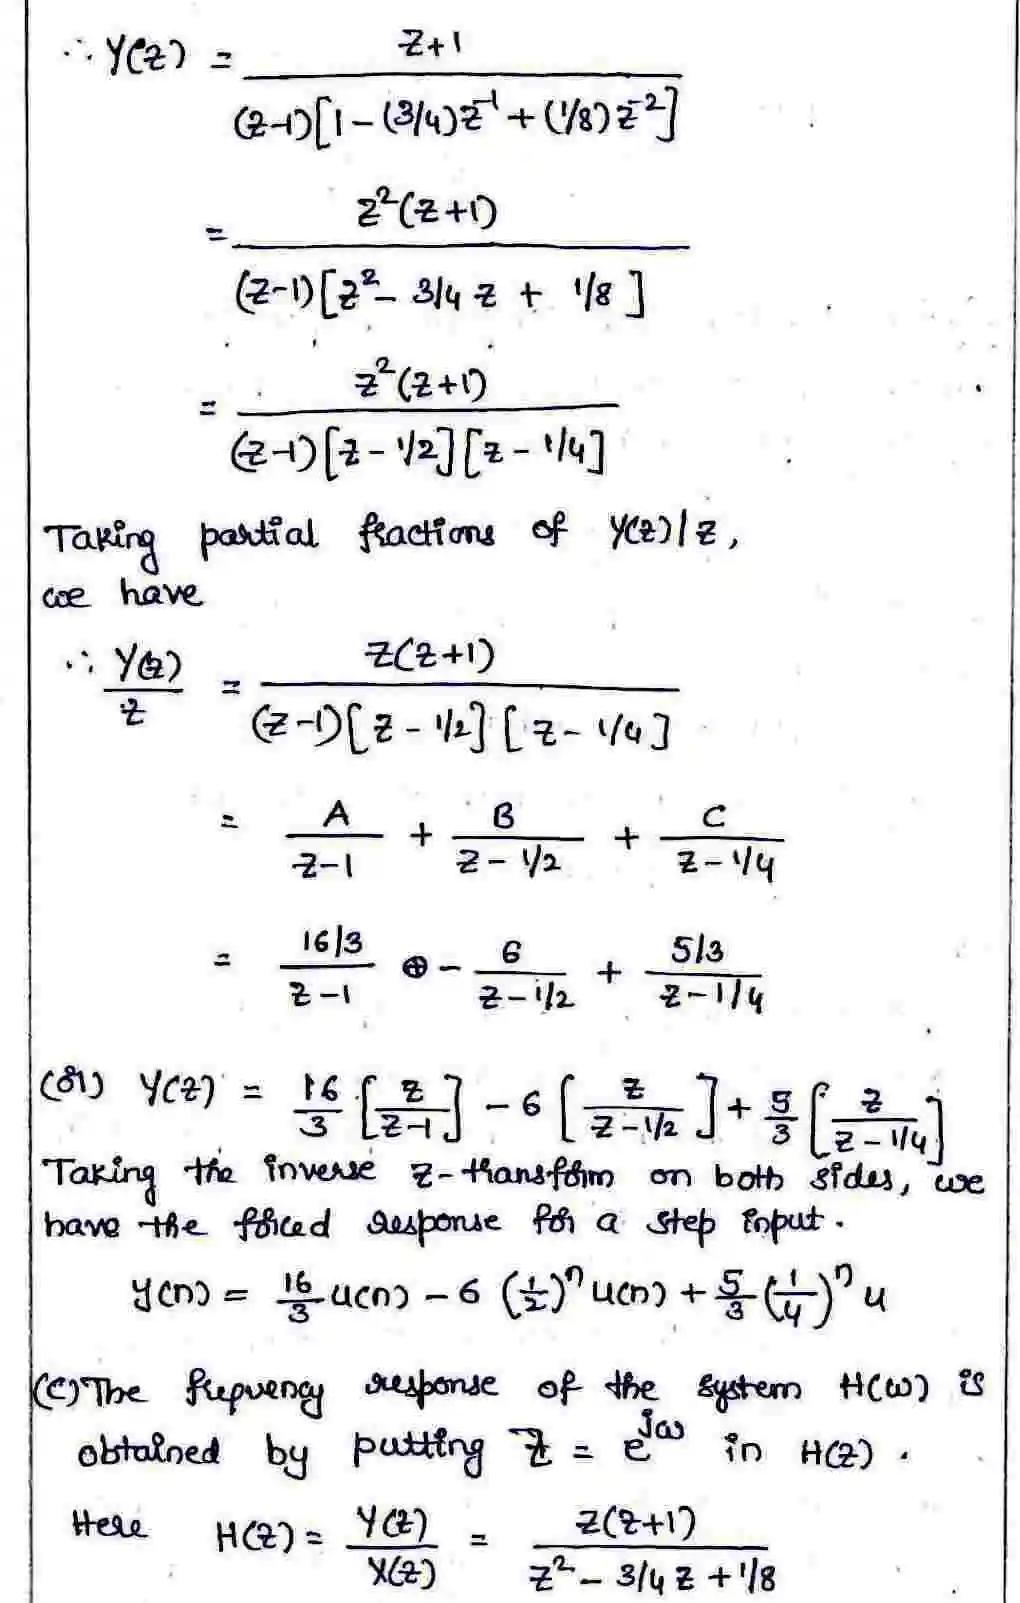 ∴ Y(z) = z+1 / (z-1)[1-(3/4)z⁻¹+(1/8)z⁻²]
= z²(z+1) / (z-1)[z²- 3/4 z + 1/8]
= z²(z+1) / (z-1)[z-1/2][z-1/4]
Taking partial fractions of Y(z)/z,
we have
∴ Y(z)/z = z(z+1) / (z-1)[z-1/2][z-1/4]
= A/z-1 + B/z-1/2 + C/z-1/4
= 16/3/z-1 - 6/z-1/2 + 5/3/z-1/4
(or) Y(z) = 16/3 [z/z-1] - 6 [z/z-1/2] + 5/3 [z/z-1/4]
Taking the inverse z-transform on both sides, we
have the forced response for a step input.
y(n) = 16/3 u(n) - 6 (1/2)ⁿ u(n) + 5/3 (1/4)ⁿ u
(c) The frequency response of the system H(ω) is
obtained by putting z = e^jω in H(z).
Here H(z) = Y(z)/X(z) = z(z+1) / z²- 3/4 z + 1/8